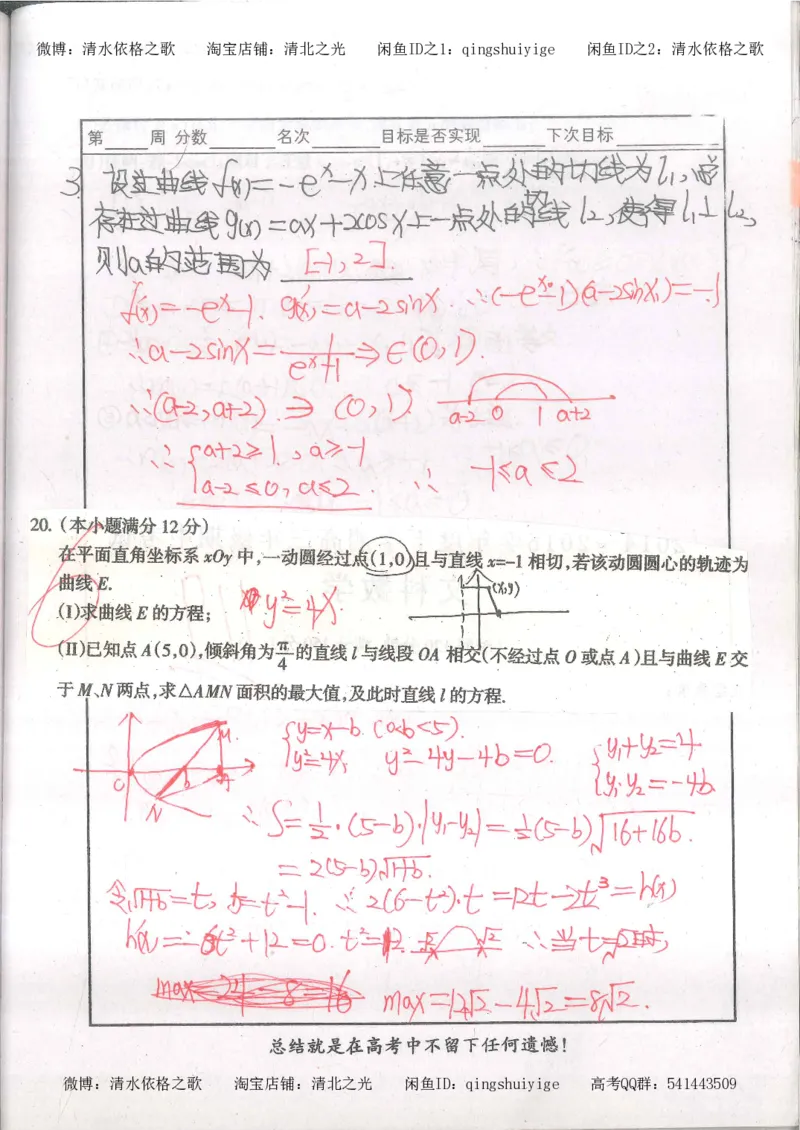 微博：清水依格之歌 淘宝店铺：清北之光 闲鱼ID之1：qingshuiyige 闲鱼ID之2：清水依格之歌
第____周 分数______名次______目标是否实现______下次目标______
3. 设过曲线f(x)=-eˣ-x上任意一点处的切线为l₁，总
存在过曲线g(x)=ax+2cosx上一点处的切线l₂，使得l₁⊥l₂，
则a的范围为 [-1,2].
f'(x)=-eˣ-1. g'(x)=a-2sinx. ∴(-eˣ-1)(a-2sinx₁)=-1
∴a-2sinx=1/(eˣ+1)⇒∈(0,1).
∴(a-2,a+2)⇒(0,1). a-2 0 1 a+2
∴{a+2≥1, a≥-1
a-2≤0, a≤2. ∴ -1≤a≤2
20.（本小题满分12分）
在平面直角坐标系xOy中,一动圆经过点(1,0)且与直线x=-1相切,若该动圆圆心的轨迹为
曲线E.
(x,y)
(Ⅰ)求曲线E的方程; y²=4x.
(Ⅱ)已知点A(5,0),倾斜角为π/4的直线l与线段OA相交(不经过点O或点A)且与曲线E交
于M、N两点,求△AMN面积的最大值,及此时直线l的方程.
M O b A N
{y=x-b. (0<b<5).
y²=4x, y²-4y-4b=0. {y₁+y₂=4
y₁·y₂=-4b
∴S=1/2·(5-b)·|y₁-y₂|=1/2(5-b)√(16+16b).
=2(5-b)√(1+b).
令√(1+b)=t, b=t²-1. ∴2(6-t²)·t=12t-2t³=h(x)
h'(x)=-6t²+12=0. t²=2 -√2 √2 ∴当t=√2时,
max=24-8=16 max=12√2-4√2=8√2.
总结就是在高考中不留下任何遗憾！
微博：清水依格之歌 淘宝店铺：清北之光 闲鱼ID：qingshuiyige 高考QQ群：541443509